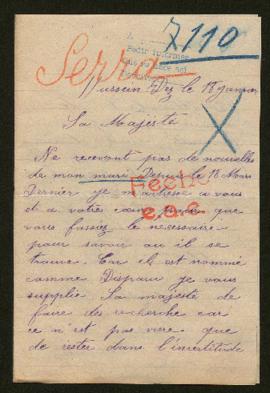 7110
Serra
Hussein Dey le 18 janvier
Sa Majesté
Ne recevant pas de nouvelles
de mon mari Depuis le 18 Mars
Dernier je m'adresse a vous
et a votre cœur pour que
vous fassiez le nécessaire
pour savoir ou il se
trouve. Car il est nommé
comme Disparu je vous
supplie Sa majesté de
faire des recherche car
ce n'est pas vivre que
de rester dans l'incertitude
Fecho